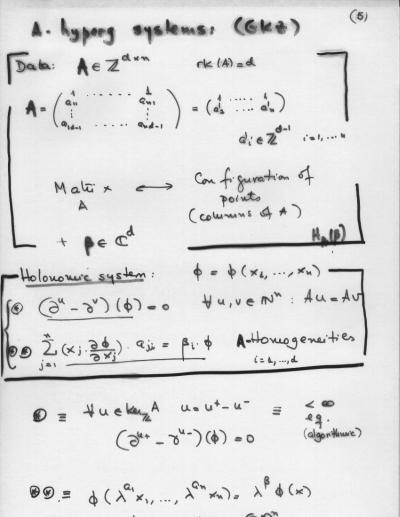 (5)
A-hyperg systems: (GKZ)
Data: A ∈ ℤ^{d×n} rk(A)=d
A = ( 1 ...... 1 ; a_{11} a_{n1} ; ⋮ ⋮ ; a_{1d-1} ...... a_{nd-1} ) = ( 1 .... 1 ; a_1 .... a_n )
a_i ∈ ℤ^{d-1} i=1,...n
Matrix A ⟷ Configuration of points
(columns of A)
+ β ∈ ℂ^d H_A(β)
Holonomic system: ϕ = ϕ(x_1,...,x_n)
⊛ (∂^u - ∂^v)(ϕ)=0 ∀u,v∈ℕ^n : Au=Av
⊛⊛ ∑_{j=1}^n (x_j ∂ϕ/∂x_j) · a_{ji} = β_i · ϕ A-Homogeneities
i=1,...,d
⊛ ≡ ∀u ∈ ker_ℤ A u = u^+ - u^- ≡ < ∞
eq.
(∂^{u+} - ∂^{u-})(ϕ)=0 (algorithmic)
⊛⊛ ≡ ϕ(λ^{a_1} x_1, ..., λ^{a_n} x_n) = λ^β ϕ(x)